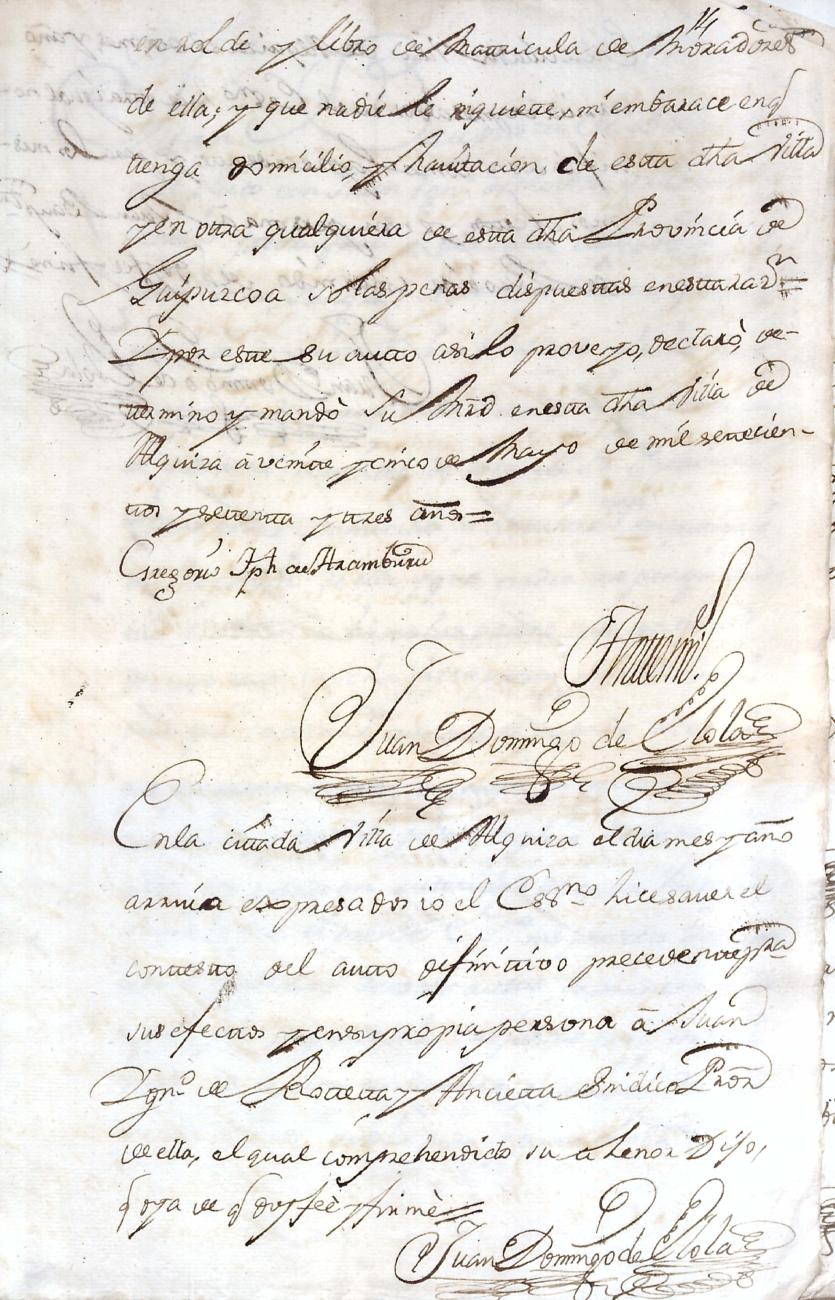 14
en rol de y libro de Matricula de Moradores
de ella; y que nadie le inquiete, ni embarace en q
tenga domicilio, y havitacion de esta dha Villa
y en otra qualquiera de esta dha Provincia de
Guipuzcoa so las penas dispuestas en esta razn=
Y por este su auto asi lo proveyo, declaró, de-
termino y mandò Su Mrd en esta dha Villa de
Alquiza à veinte y cinco de Mayo de mil setecien-
tos y setenta y tres años=
Gregorio Jph de Aramburu
Antemi
Juan Domingo de Olola
En la citada Villa de Alquiza el dia mes y año
arriva expresados io el Essno hice saver el
contesto del auto difinitivo precedente pra
sus efectos y en su propia persona à Juan
Ygno de Rotetta y Ancietta Sindico Pror
de ella, el qual comprehendido su thenor Dijo,
q oya de q doy feè y firmè=
Juan Domingo de Olola